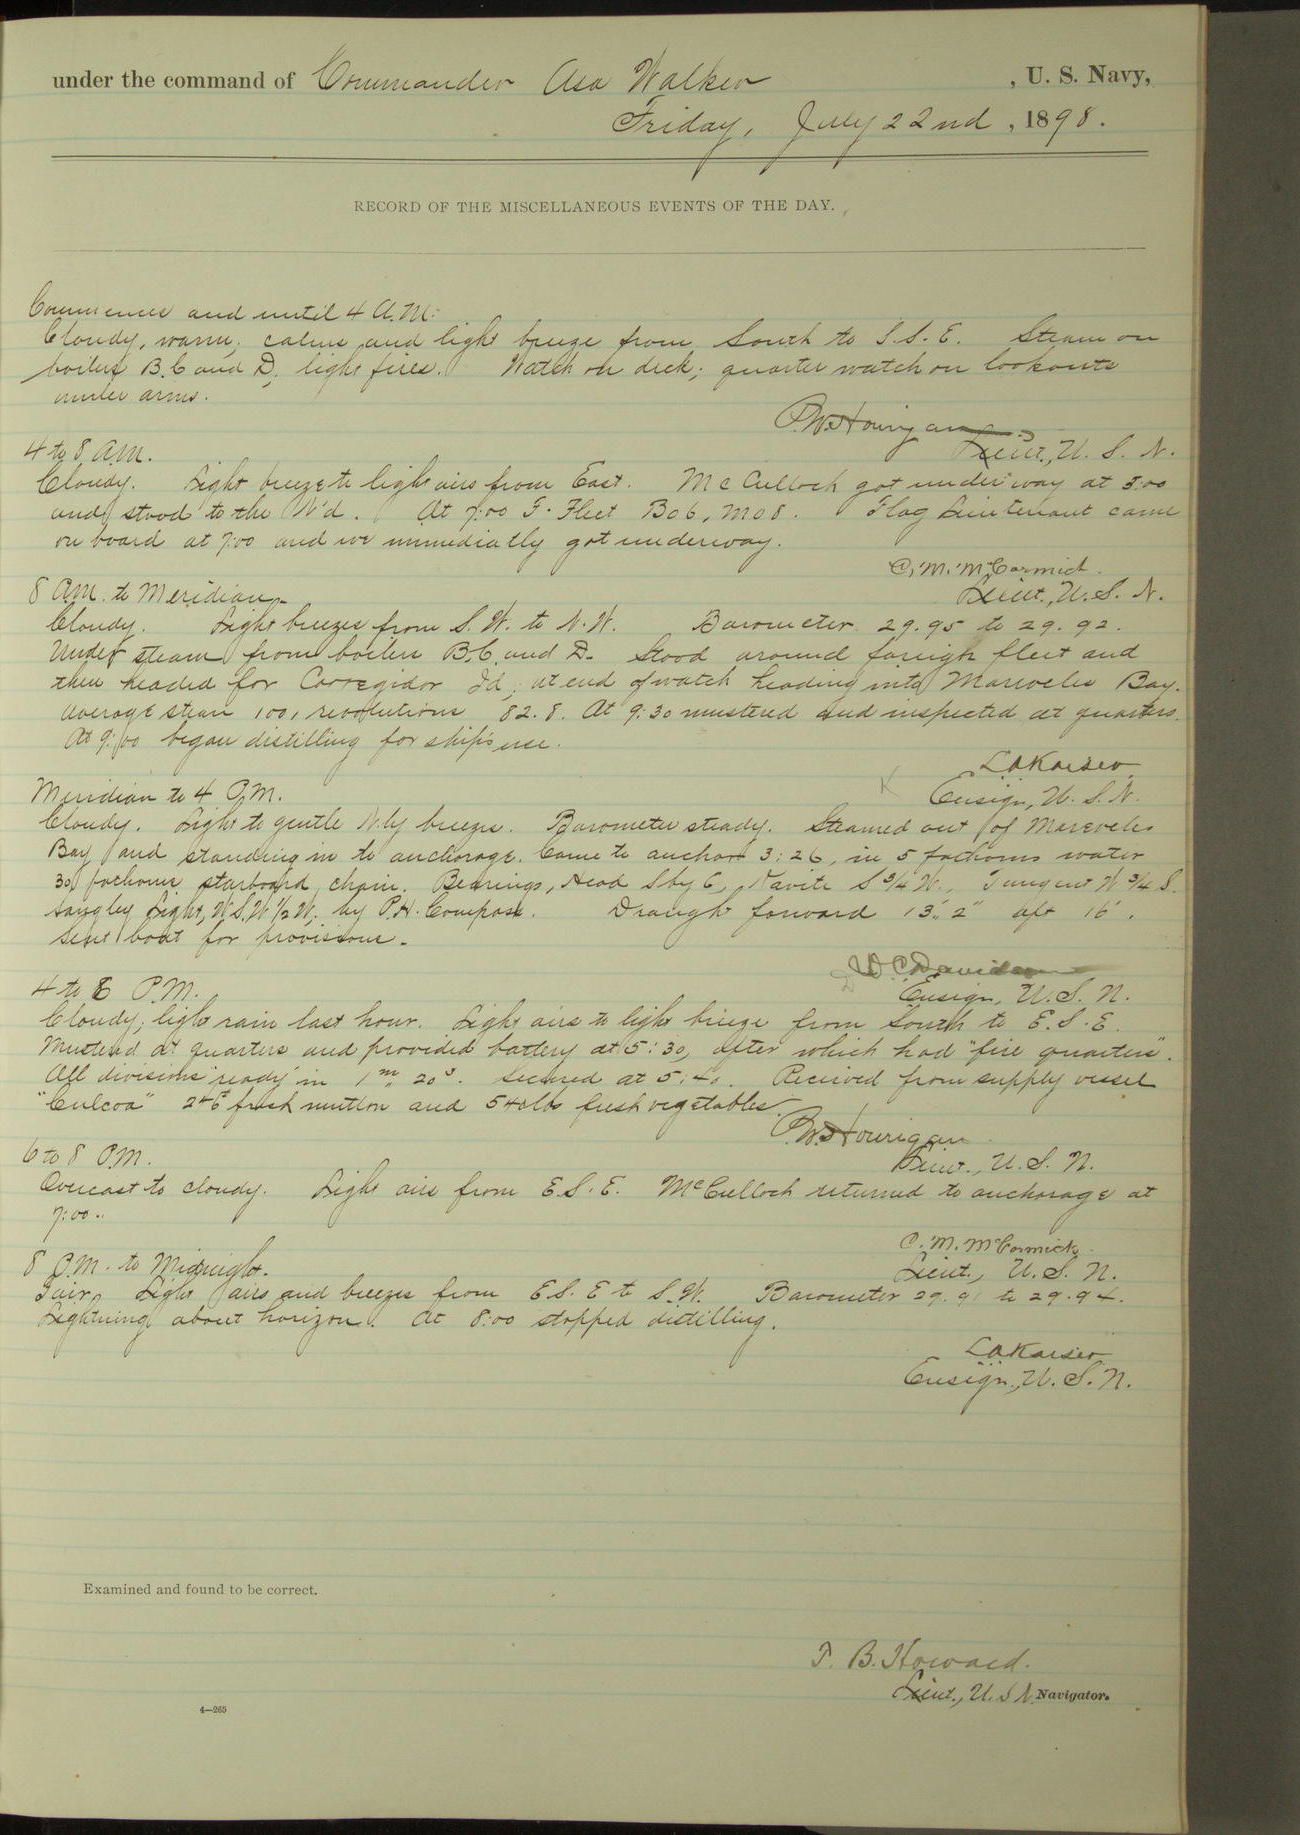 under the command of Commander Asa Walker , U. S. Navy,
Friday, July 22nd , 1898.
RECORD OF THE MISCELLANEOUS EVENTS OF THE DAY.
Commence and until 4 A.M:
Cloudy, warm; calm and light breeze from South to S.S.E. Steam on
boilers B.C and D, light fires. Watch on deck; quarter watch on lookouts
under arms.
P.W. Hourigan
Lieut., U. S. N.
4 to 8 A.M.
Cloudy. Light breeze to light airs from East. McCulloch got under way at 5:00
and stood to the N'd. At 7:00 G. Fleet B06, M08. Flag Lieutenant came
on board at 7:00 and we immediately got underway.
C. M. McCormick.
Lieut., U. S. N.
8 A.M. to Meridian.
Cloudy. Light breezes from S. W. to N. W. Barometer 29.95 to 29.92.
Under steam from boilers B.C. and D. Stood around foreign fleet and
then headed for Corregidor Id; at end of watch heading into Mariveles Bay.
Average steam 100, revolutions 82.8. At 9:30 mustered and inspected at quarters.
At 9:00 began distilling for ship's use.
L A Kaiser
Ensign, U. S. N.
Meridian to 4 P.M.
Cloudy. Light to gentle N.ly breeze. Barometer steady. Steamed out of Mareveles
Bay and standing in to anchorage. Came to anchor 3:26, in 5 fathoms water
30 fathoms starboard chain. Bearings, Head S by E, Cavite S 3/4 W., Tangent W 3/4 S.
Sangley Light, W.S.W 1/2 W. by P.H. Compass. Draught forward 13' 2" aft 16'.
Sent boat for provisions.
W C Davidson
Ensign, U. S. N.
4 to 6 P.M.
Cloudy; light rain last hour. Light airs to light breeze from South to E.S.E.
Mustered at quarters and provided battery at 5:30, after which had "fire quarters".
All divisions "ready" in 1m 20s. Secured at 5:40. Received from supply vessel
"Culcoa" 246# fresh mutton and 540 lbs fresh vegetables.
P.W. Hourigan
Lieut., U. S. N.
6 to 8 P.M.
Overcast to cloudy. Light airs from E.S.E. McCulloch returned to anchorage at
7:00.
C. M. McCormick.
Lieut., U. S. N.
8 P.M. to Midnight.
Fair. Light airs and breezes from E.S.E to S.W. Barometer 29.91 to 29.94.
Lightning about horizon. At 8:00 stopped distilling.
L A Kaiser
Ensign, U. S. N.
Examined and found to be correct.
T. B. Howard.
Lieut., U. S N. Navigator.
4—265